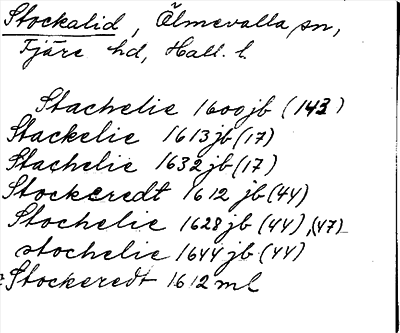 Stockalid, Ölmevalla sn,
Fjäre hd, Hall. l.
Stachelie 1600 jb (143)
Stackelie 1613 jb (17)
Stachelie 1632 jb (17)
Stockeredt 1612 jb (44)
Stochelie 1628 jb (44), (47)
Stochelie 1644 jb (44)
Stockeredt 1612 ml